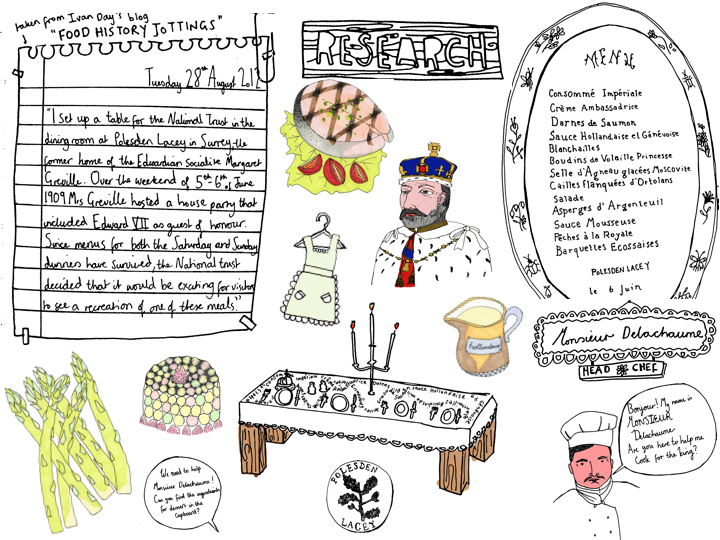 taken from Ivan Day's blog
"FOOD HISTORY JOTTINGS"
Tuesday 28th August 2012
"I set up a table for the National Trust in the
dining room at Polesden Lacey in Surrey, the
former home of the Edwardian Socialite Margaret
Greville. Over the weekend of 5th 6th of June
1909 Mrs Greville hosted a house party that
included Edward VII as guest of honour.
Since menus for both the Saturday and Sunday
dinners have survived, the National trust
decided that it would be exciting for visitors
to see a recreation of one of these meals."
RESEARCH
MENU
Consommé Impériale
Crème Ambassadrice
Darnes de Saumon
Sauce Hollandaise et Génévoise
Blanchailles
Boudins de Volaille Princesse
Selle d'Agneau glacées Moscovite
Cailles flanquées d'Ortolans
Salade
Asperges d'Argenteuil
Sauce Mousseuse
Pêches à la Royale
Barquettes Ecossaises
POLESDEN LACEY
le 6 Juin
hollandaise
Monsieur Delachaume
HEAD CHEF
Bonjour! My name is
MONSIEUR
Delachaume
Are you here to help me
Cook for the king?
We need to help
Monsieur Delachaume!
Can you find the ingredients
for dessert in the
cupboard?
POLESDEN
LACEY